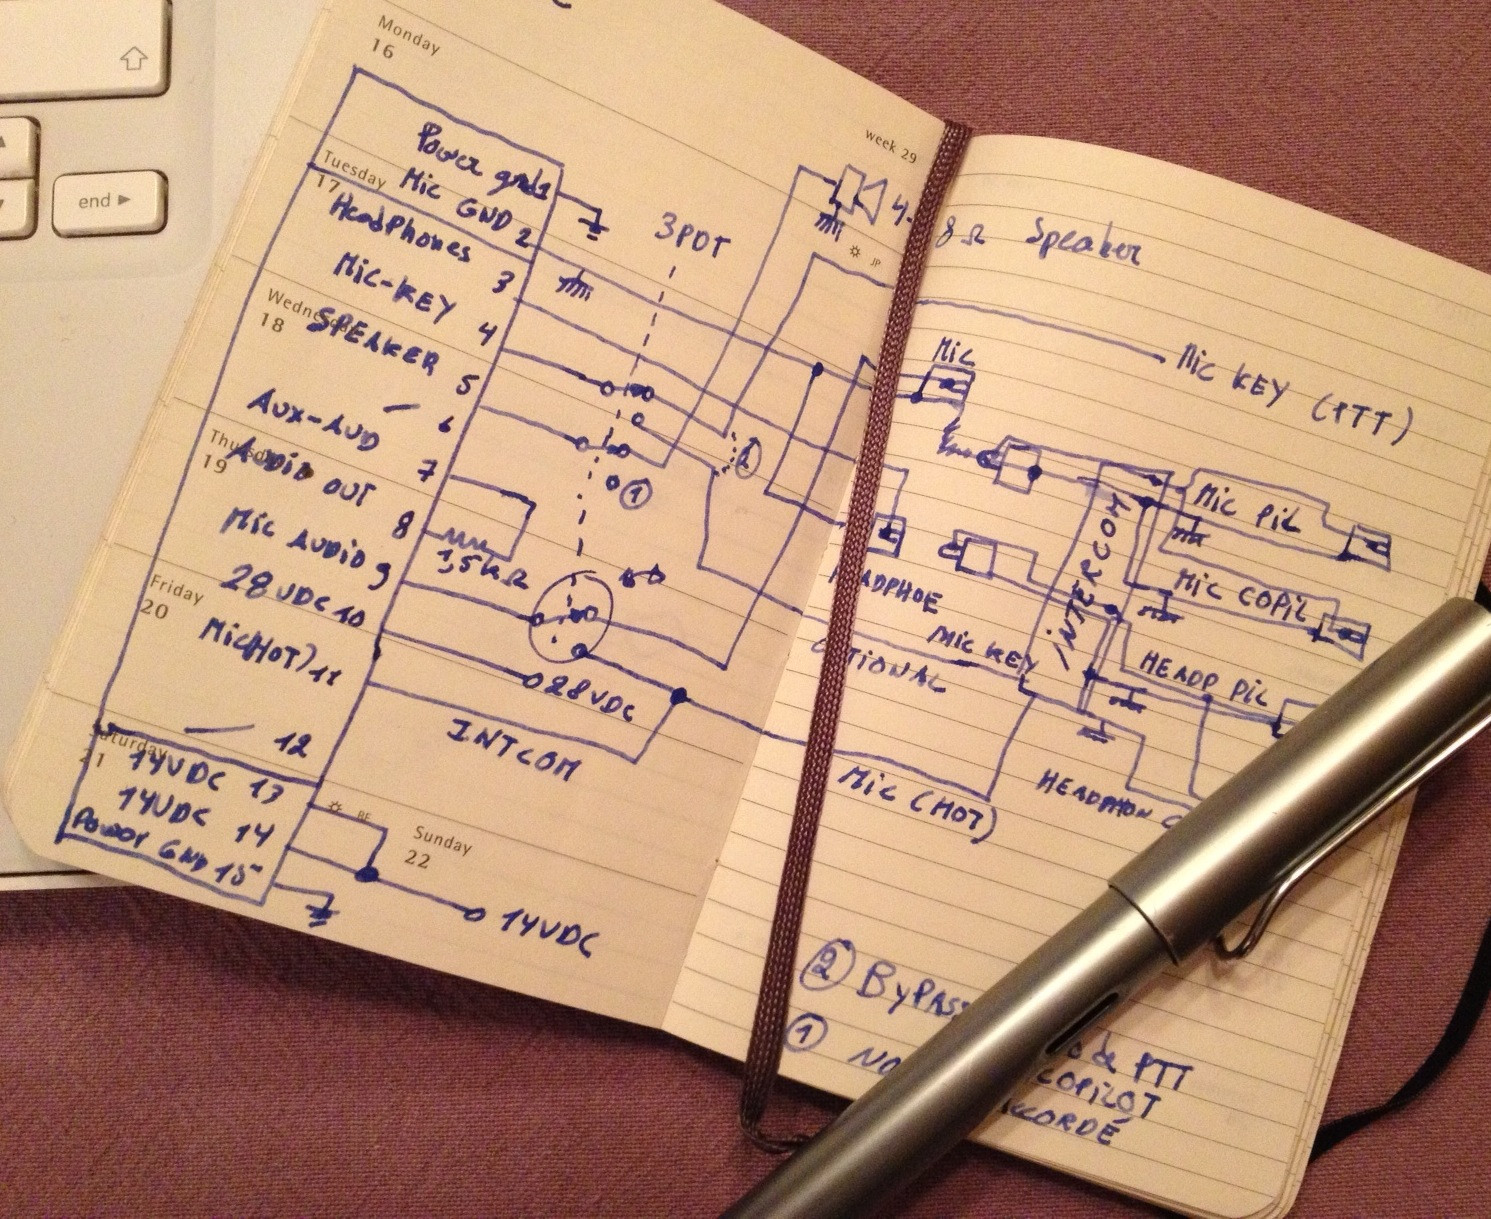 end ▶
Monday
16
week 29
Power gnd 1
Tuesday
17
Mic GND 2
Headphones 3
3PDT
4-8Ω Speaker
JP
Mic-KEY 4
Wednesday
18
SPEAKER 5
— 6
Mic
Mic KEY (PTT)
AUX-AUD 7
Thursday
19
AUDIO OUT 8
1,5kΩ
②
①
Mic AUDIO 9
28VDC 10
Friday
20
Mic(HOT) 11
28VDC
INTCOM
— 12
Saturday
21
14VDC 13
14VDC 14
Power GND 15
BE
Sunday
22
14VDC
INTERCOM
Mic PiL
Mic COPiL
HEADPHOE
Mic KEY
HEADP PiL
Mic (HOT)
HEADPHON C
② ByPASS
① NO
de PTT
COPiLOT